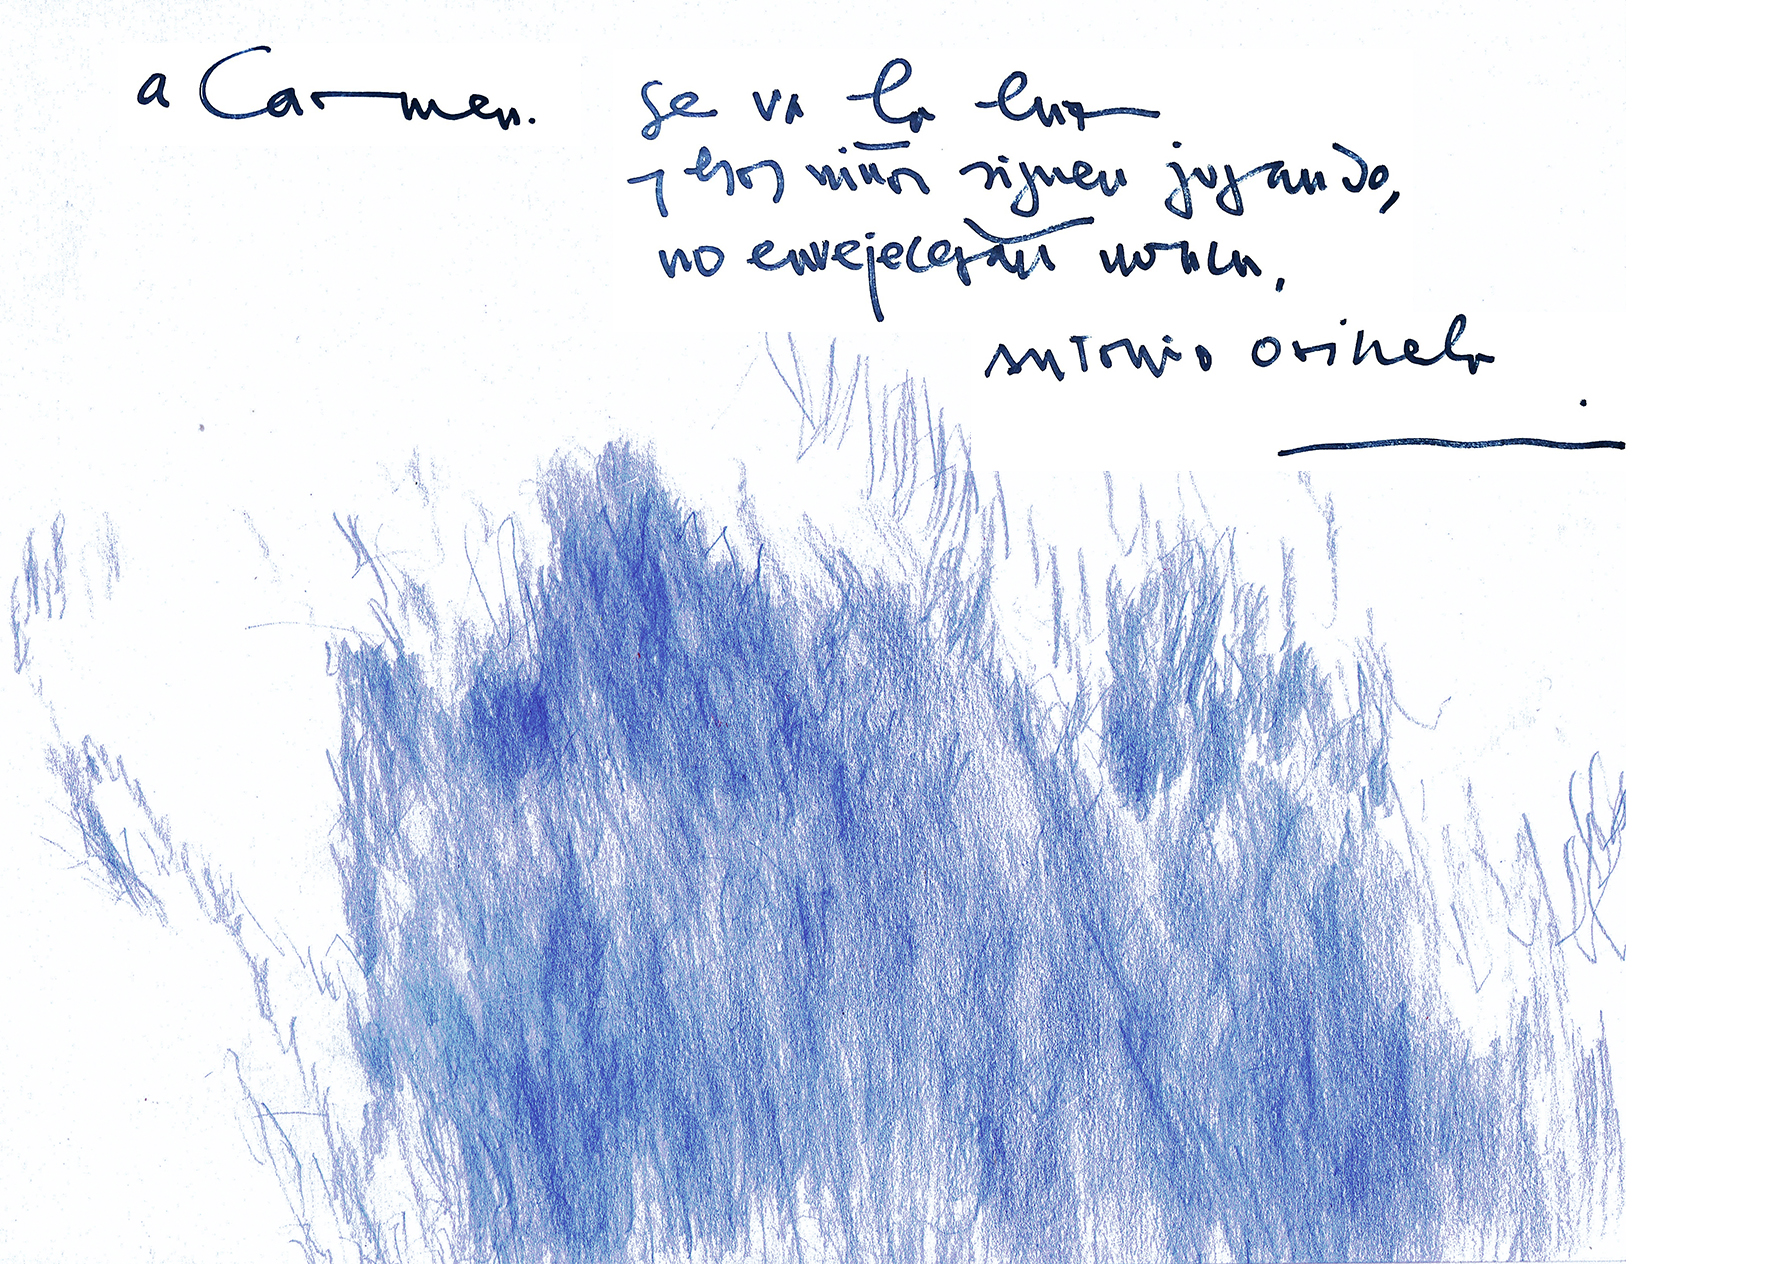 a Carmen.
Se va la luz
y esos niños siguen jugando,
no envejecerán nunca.
Antonio Orihuela